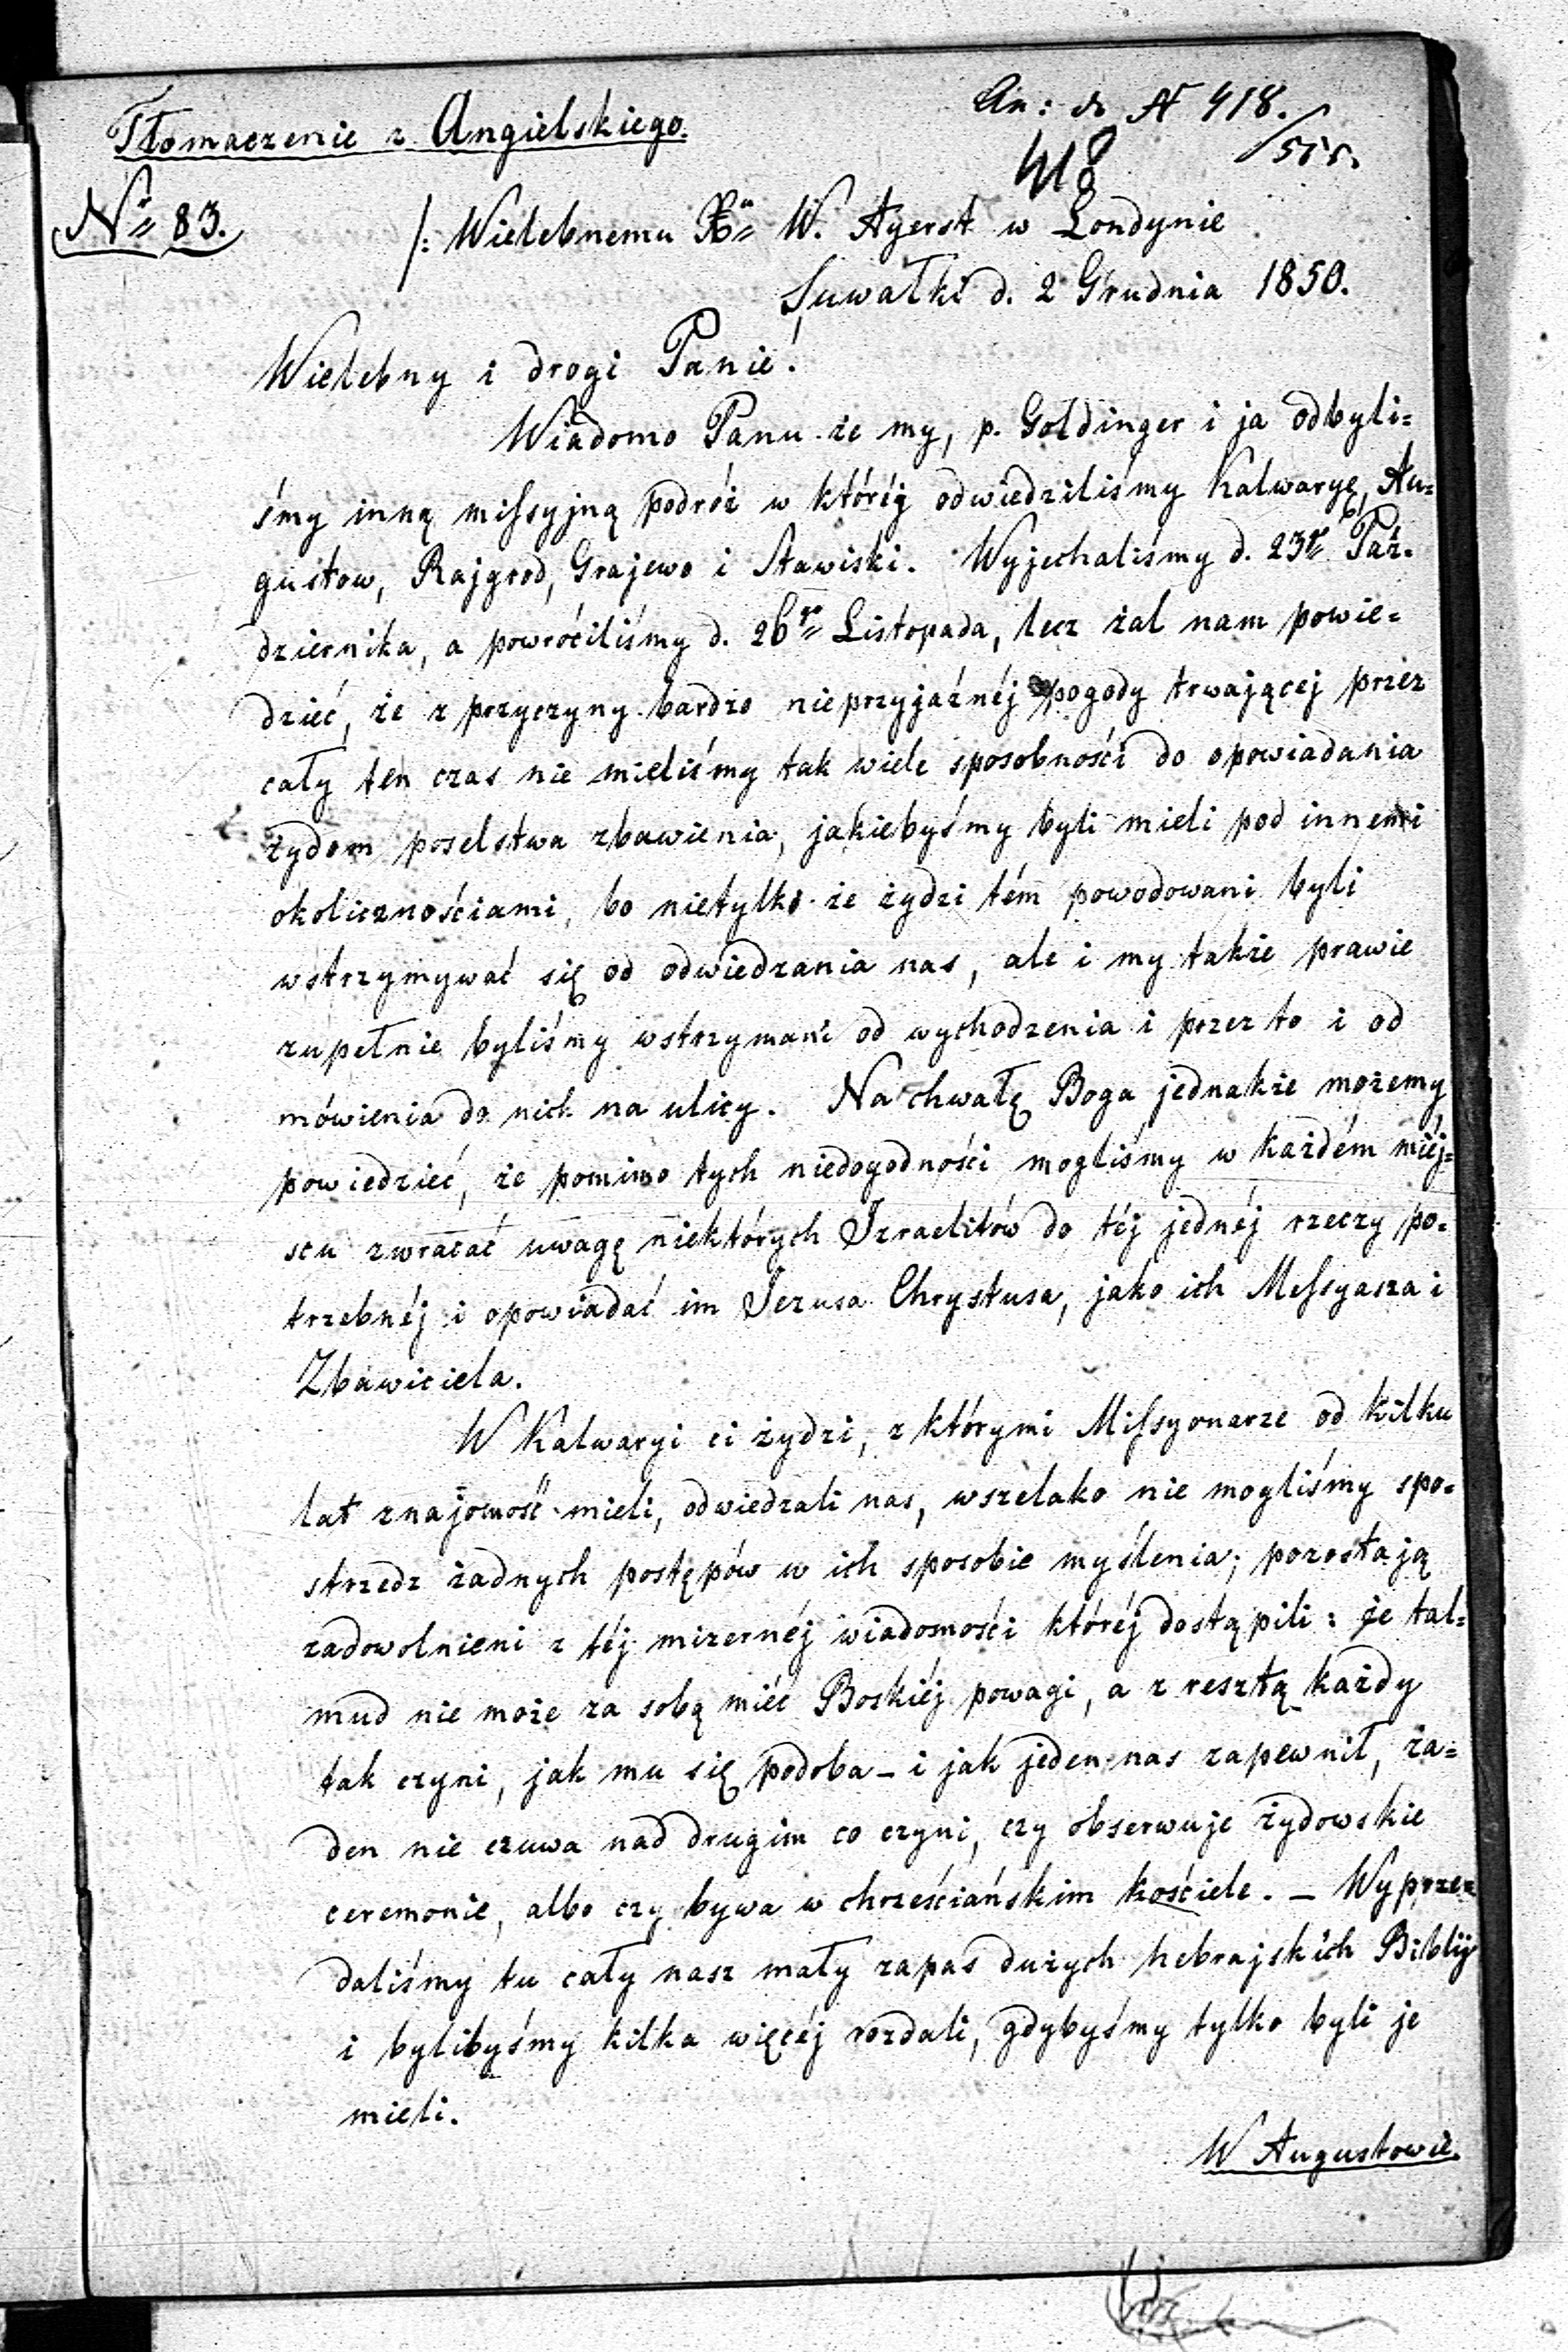 Tłomaczenie z Angielskiego.
An: do № 418.
/51 r.
418
№ 83.
/: Wielebnemu Xu W. Ayerst w Londynie
Suwałki d. 2 Grudnia 1850.
Wielebny i drogi Panie!
Wiadomo Panu że my, p. Goldinger i ja odbyli=
śmy inną missyjną podróż w któréj odwiedziliśmy Kalwaryę, Au=
gustow, Rajgrod, Grajewo i Stawiski. Wyjechaliśmy d. 23go Paź=
dziernika, a powróciliśmy d. 26go Listopada, lecz żal nam powie=
dzieć, że z przyczyny bardzo nieprzyjaźnéj pogody trwającej przez
cały ten czas nie mieliśmy tak wiele sposobności do opowiadania
żydom poselstwa zbawienia, jakiebyśmy byli mieli pod innemi
okolicznościami, bo nietylko że żydzi tém powodowani byli
wstrzymywać się od odwiedzania nas, ale i my także prawie
zupełnie byliśmy wstrzymani od wychodzenia i przez to i od
mówienia do nich na ulicy. Na chwałę Boga jednakże możemy
powiedzieć, że pomimo tych niedogodności mogliśmy w każdém miéj=
scu zwracać uwagę niektórych Izraelitów do téj jednéj rzeczy po=
trzebnéj i opowiadać im Jezusa Chrystusa, jako ich Messyasza i
Zbawiciela.
W Kalwaryi ci żydzi, z którymi Missyonarze od kilku
lat znajomość mieli, odwiedzali nas, wszelako nie mogliśmy spo=
strzedz żadnych postępów w ich sposobie myślenia; pozostają
zadowolnieni z téj mizernéj wiadomości któréj dostąpili: że tal=
mud nie może za sobą mieć Boskiéj powagi, a z resztą każdy
tak czyni, jak mu się podoba – i jak jeden nas zapewnił, ża=
den nie czuwa nad drugim co czyni, czy obserwuje żydowskie
ceremonie, albo czy bywa w chrześciańskim kościele. – Wyprze=
daliśmy tu cały nasz mały zapas dużych hebrajskich Biblij
i bylibyśmy kilka więcéj rozdali, gdybyśmy tylko byli je
mieli.
W Augustowie.